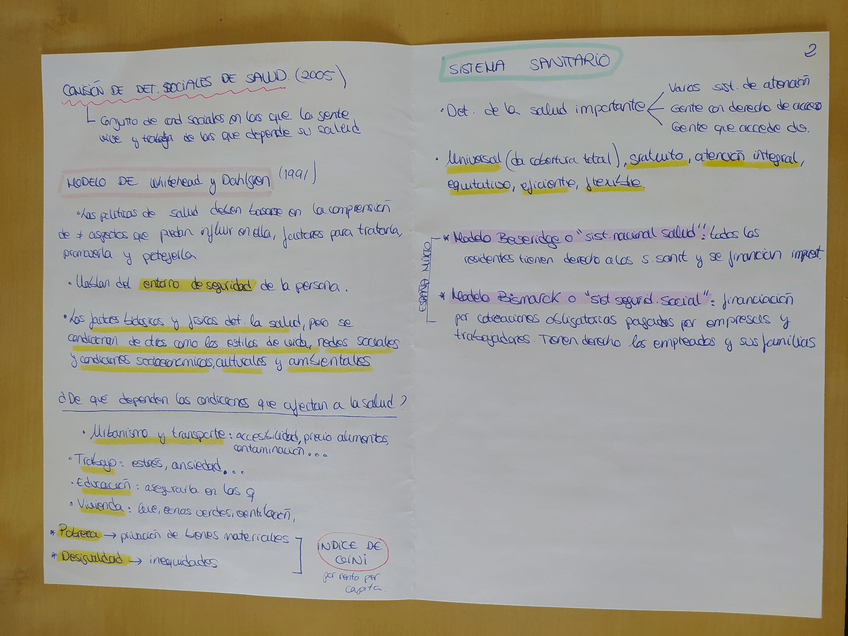 COMISIÓN DE DET. SOCIALES DE SALUD (2005)
Conjunto de cond sociales en las que la gente
vive y trabaja de las que depende su salud
MODELO DE Whitehead y Dahlgren (1991)
• Las políticas de salud deben basarse en la comprensión
de ≠ aspectos que puedan influir en ella, factores para tratarla,
promoverla y protejerla
• Hablan del entorno de seguridad de la persona.
• Los factores biológicos y físicos det la salud, pero se
condicionan de otros como los estilos de vida, redes sociales
y condiciones socioeconómicas, culturales y ambientales
¿De que dependen las condiciones que afectan a la salud?
• Urbanismo y transporte: accesibilidad, precio alimentos,
contaminación...
• Trabajo: estrés, ansiedad...
• Educación: asegurarla en las ♀
• Vivienda: luz, zonas verdes, ventilación,
* Pobreza → privación de bienes materiales
* Desigualdad → inequidades
ÍNDICE DE
GINI
por renta per
capita
2
SISTEMA SANITARIO
• Det. de la salud importante
Varios sist. de atención
Gente con derecho de acceso
Gente que accede
• Universal (da cobertura total), gratuito, atención integral,
equitativo, eficiente, flexible
ESPAÑA MIXTO
* Modelo Beveridge o "sist nacional salud": todos los
residentes tienen derecho a los s. sanit y se financian impuest.
* Modelo Bismarck o "sist segurid. social": financiación
por cotizaciones obligatorias pagadas por empresas y
trabajadores Tienen derecho los empleados y sus familias